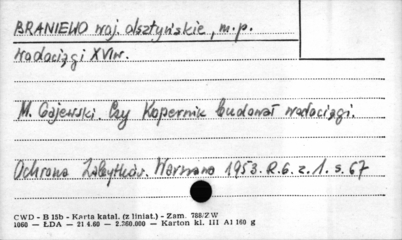 BRANIEWO woj. olsztyńskie, m.p.
Wodociągi XVIw.
M. Gajewski. Czy Kopernik budował wodociągi.
Ochrona Zabytków. Warszawa 1953. R.6. z.1. s.67
CWD - B 15b - Karta katal. (z liniat.) - Zam. 788/ZW
1060 — ŁDA — 21 4.60 — 2.760.000 — Karton kl. III A1 160 g